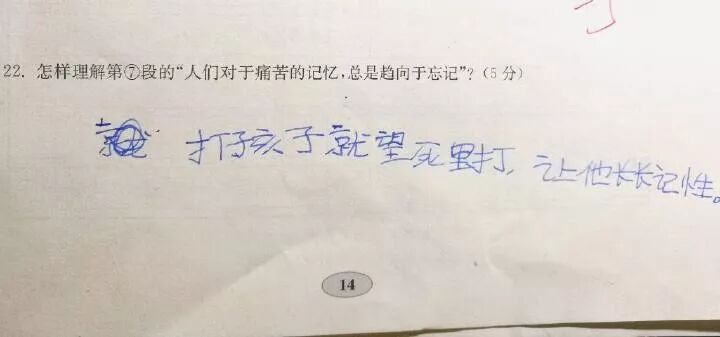 22. 怎样理解第⑦段的“人们对于痛苦的记忆,总是趋向于忘记”?(5分)
打孩子就望死里打,让他长长记性。
14